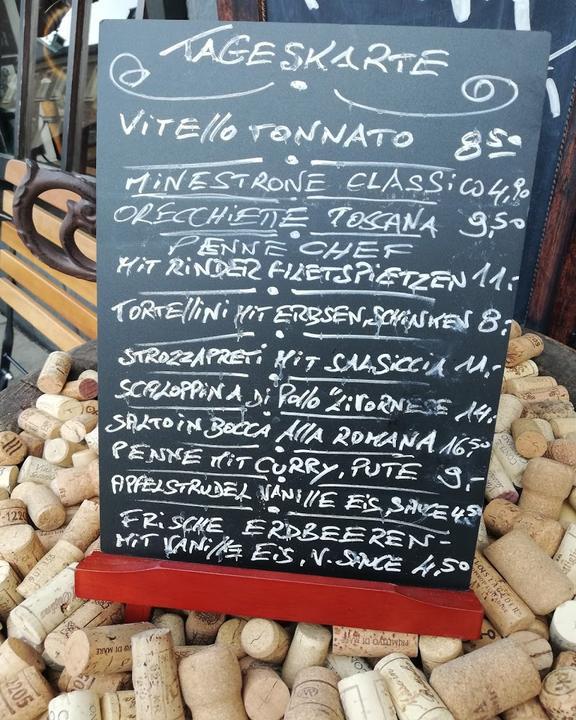 TAGESKARTE
VITELLO TONNATO 8,50
MINESTRONE CLASSICO 4,90
ORECCHIETTE TOSCANA 9,50
PENNE CHEF
MIT RINDER FILETSPIETZEN 11,-
TORTELLINI MIT ERBSEN, SCHINKEN 8,-
STROZZAPRETI MIT SALSICCIA 11,-
SCALOPPINA Di Pollo "LIVORNESE 14,-
SALTO IN BOCCA Alla ROMANA 16,50
PENNE MIT CURRY, PUTE 9,-
APFELSTRUDEL VANILLE EIS, SAUCE 4,50
FRISCHE ERDBEEREN -
MIT VANILLE EIS, V. SAUCE 4,50
PRIMITIVO DI